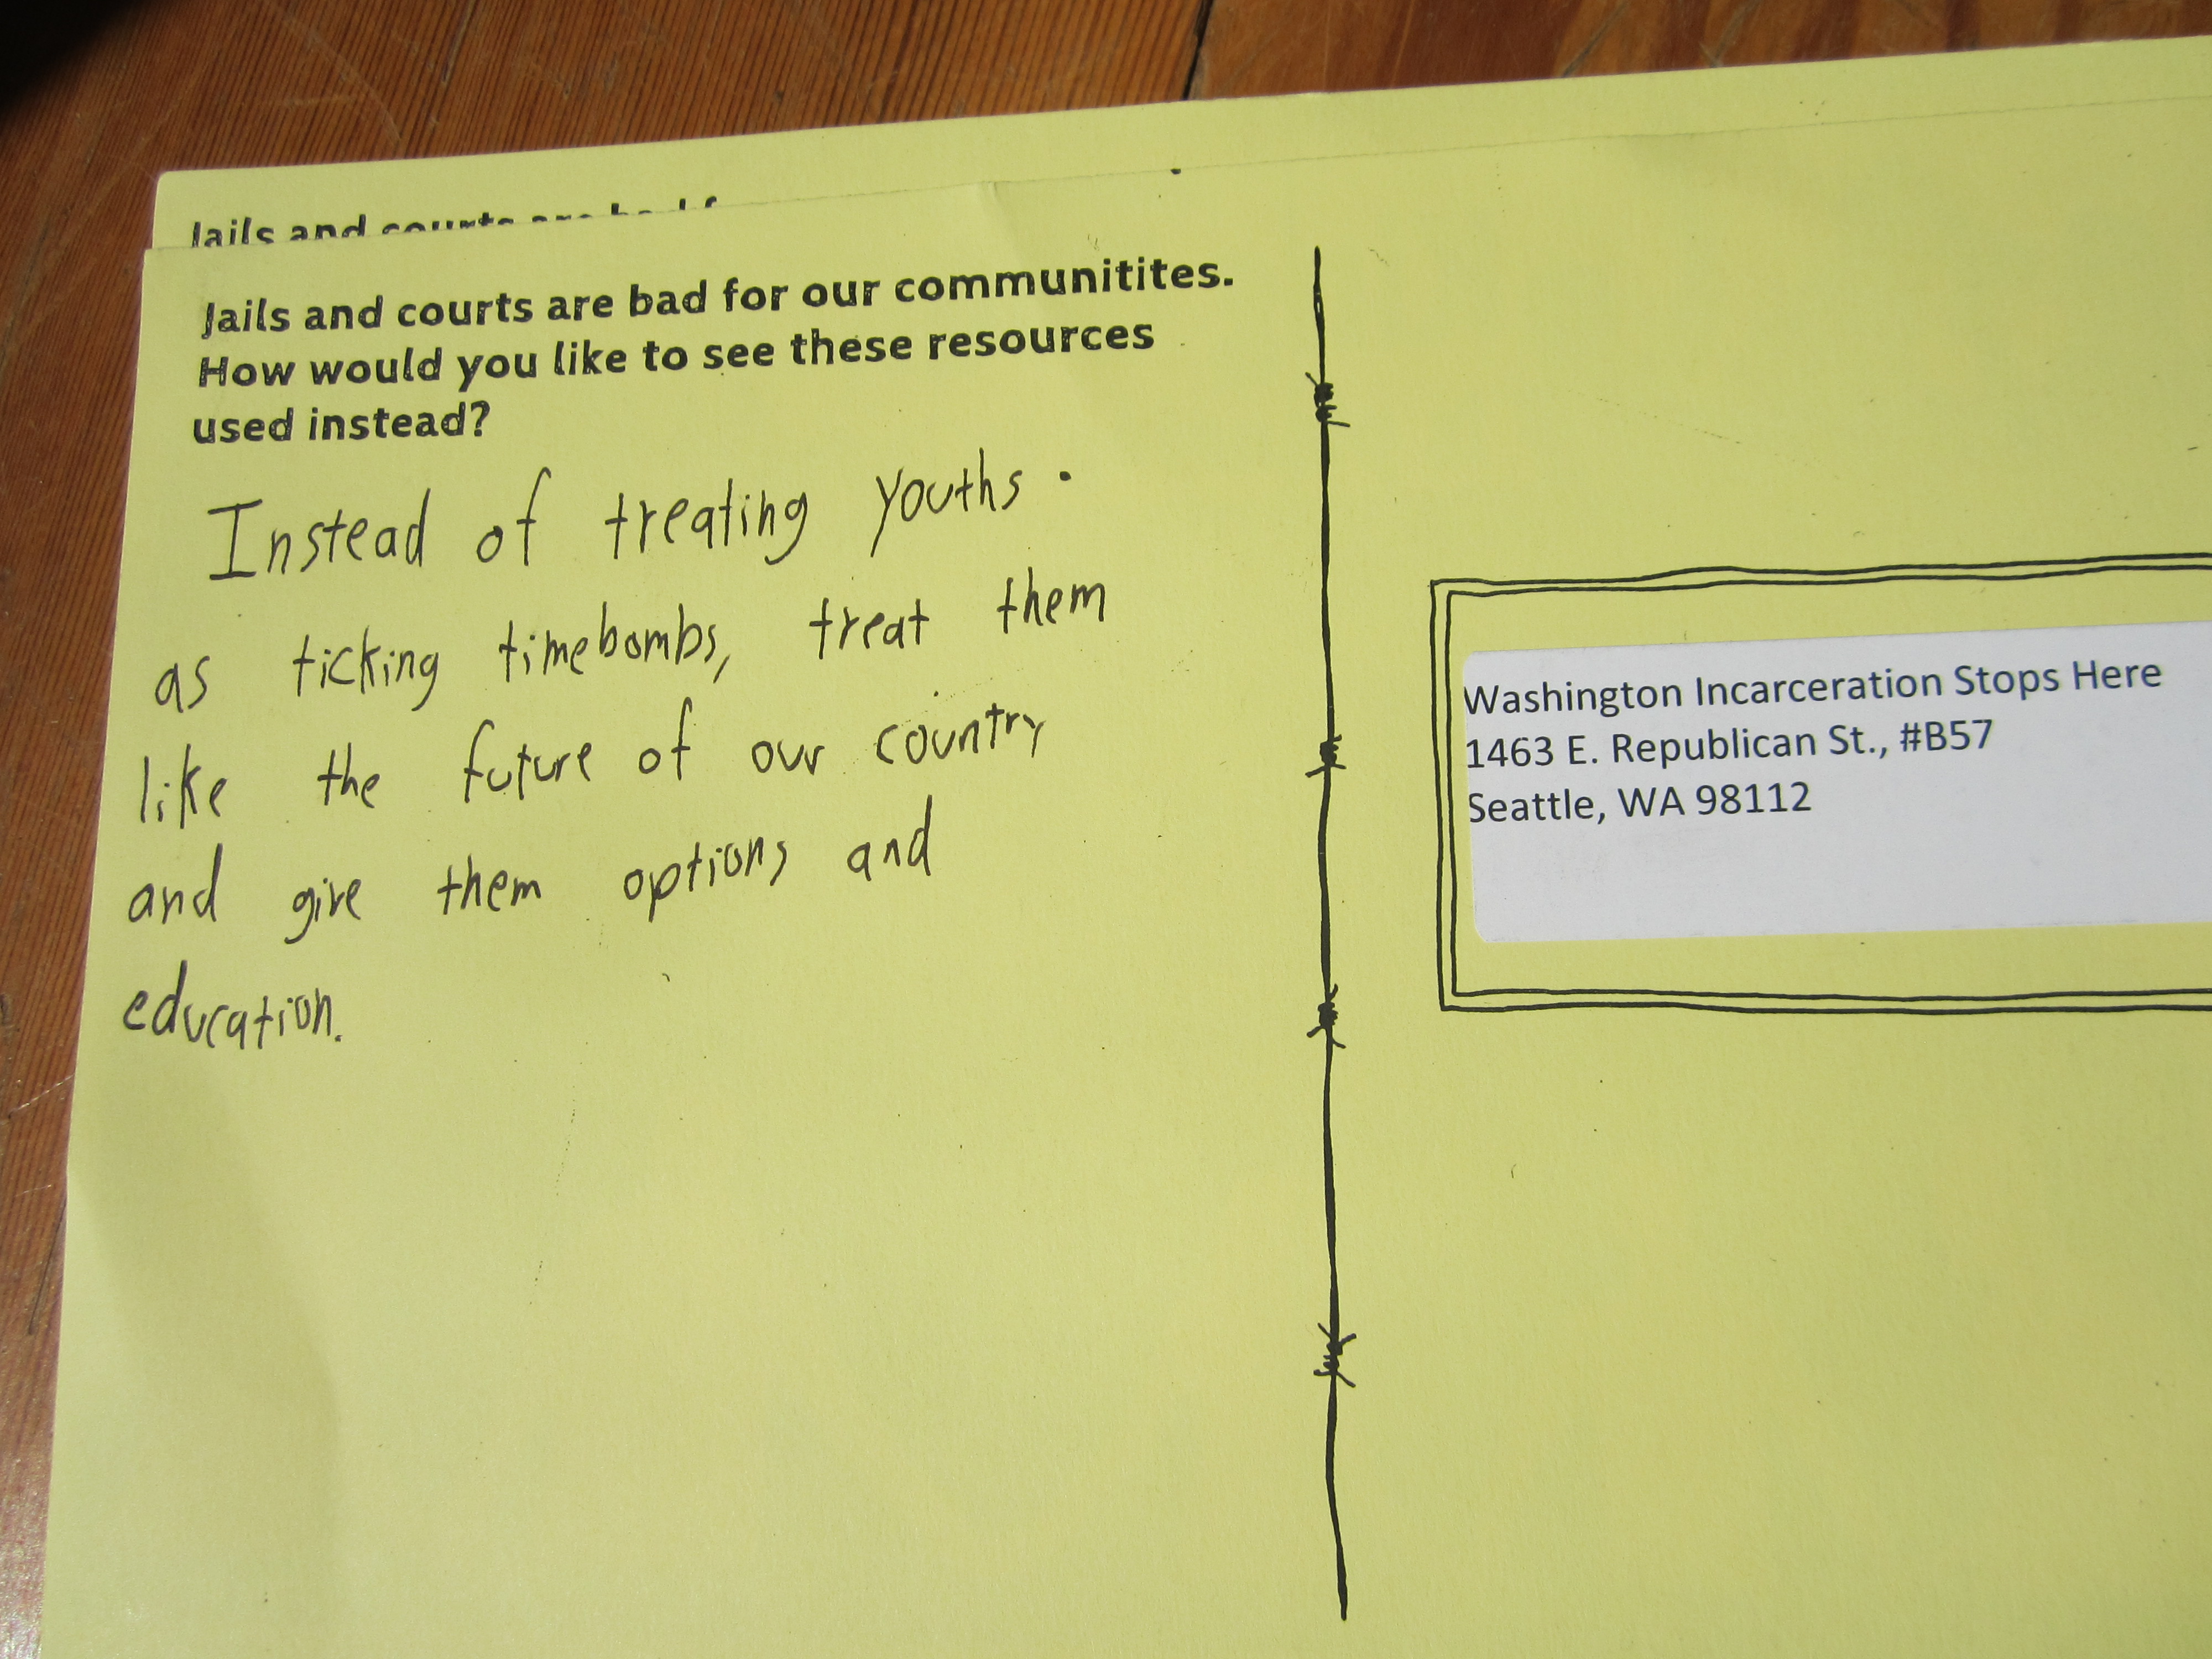 Jails and courts are bad f
Jails and courts are bad for our communitites.
How would you like to see these resources
used instead?
Instead of treating youths
as ticking timebombs, treat them
like the future of our country
and give them options and
education.
Washington Incarceration Stops Here
1463 E. Republican St., #B57
Seattle, WA 98112